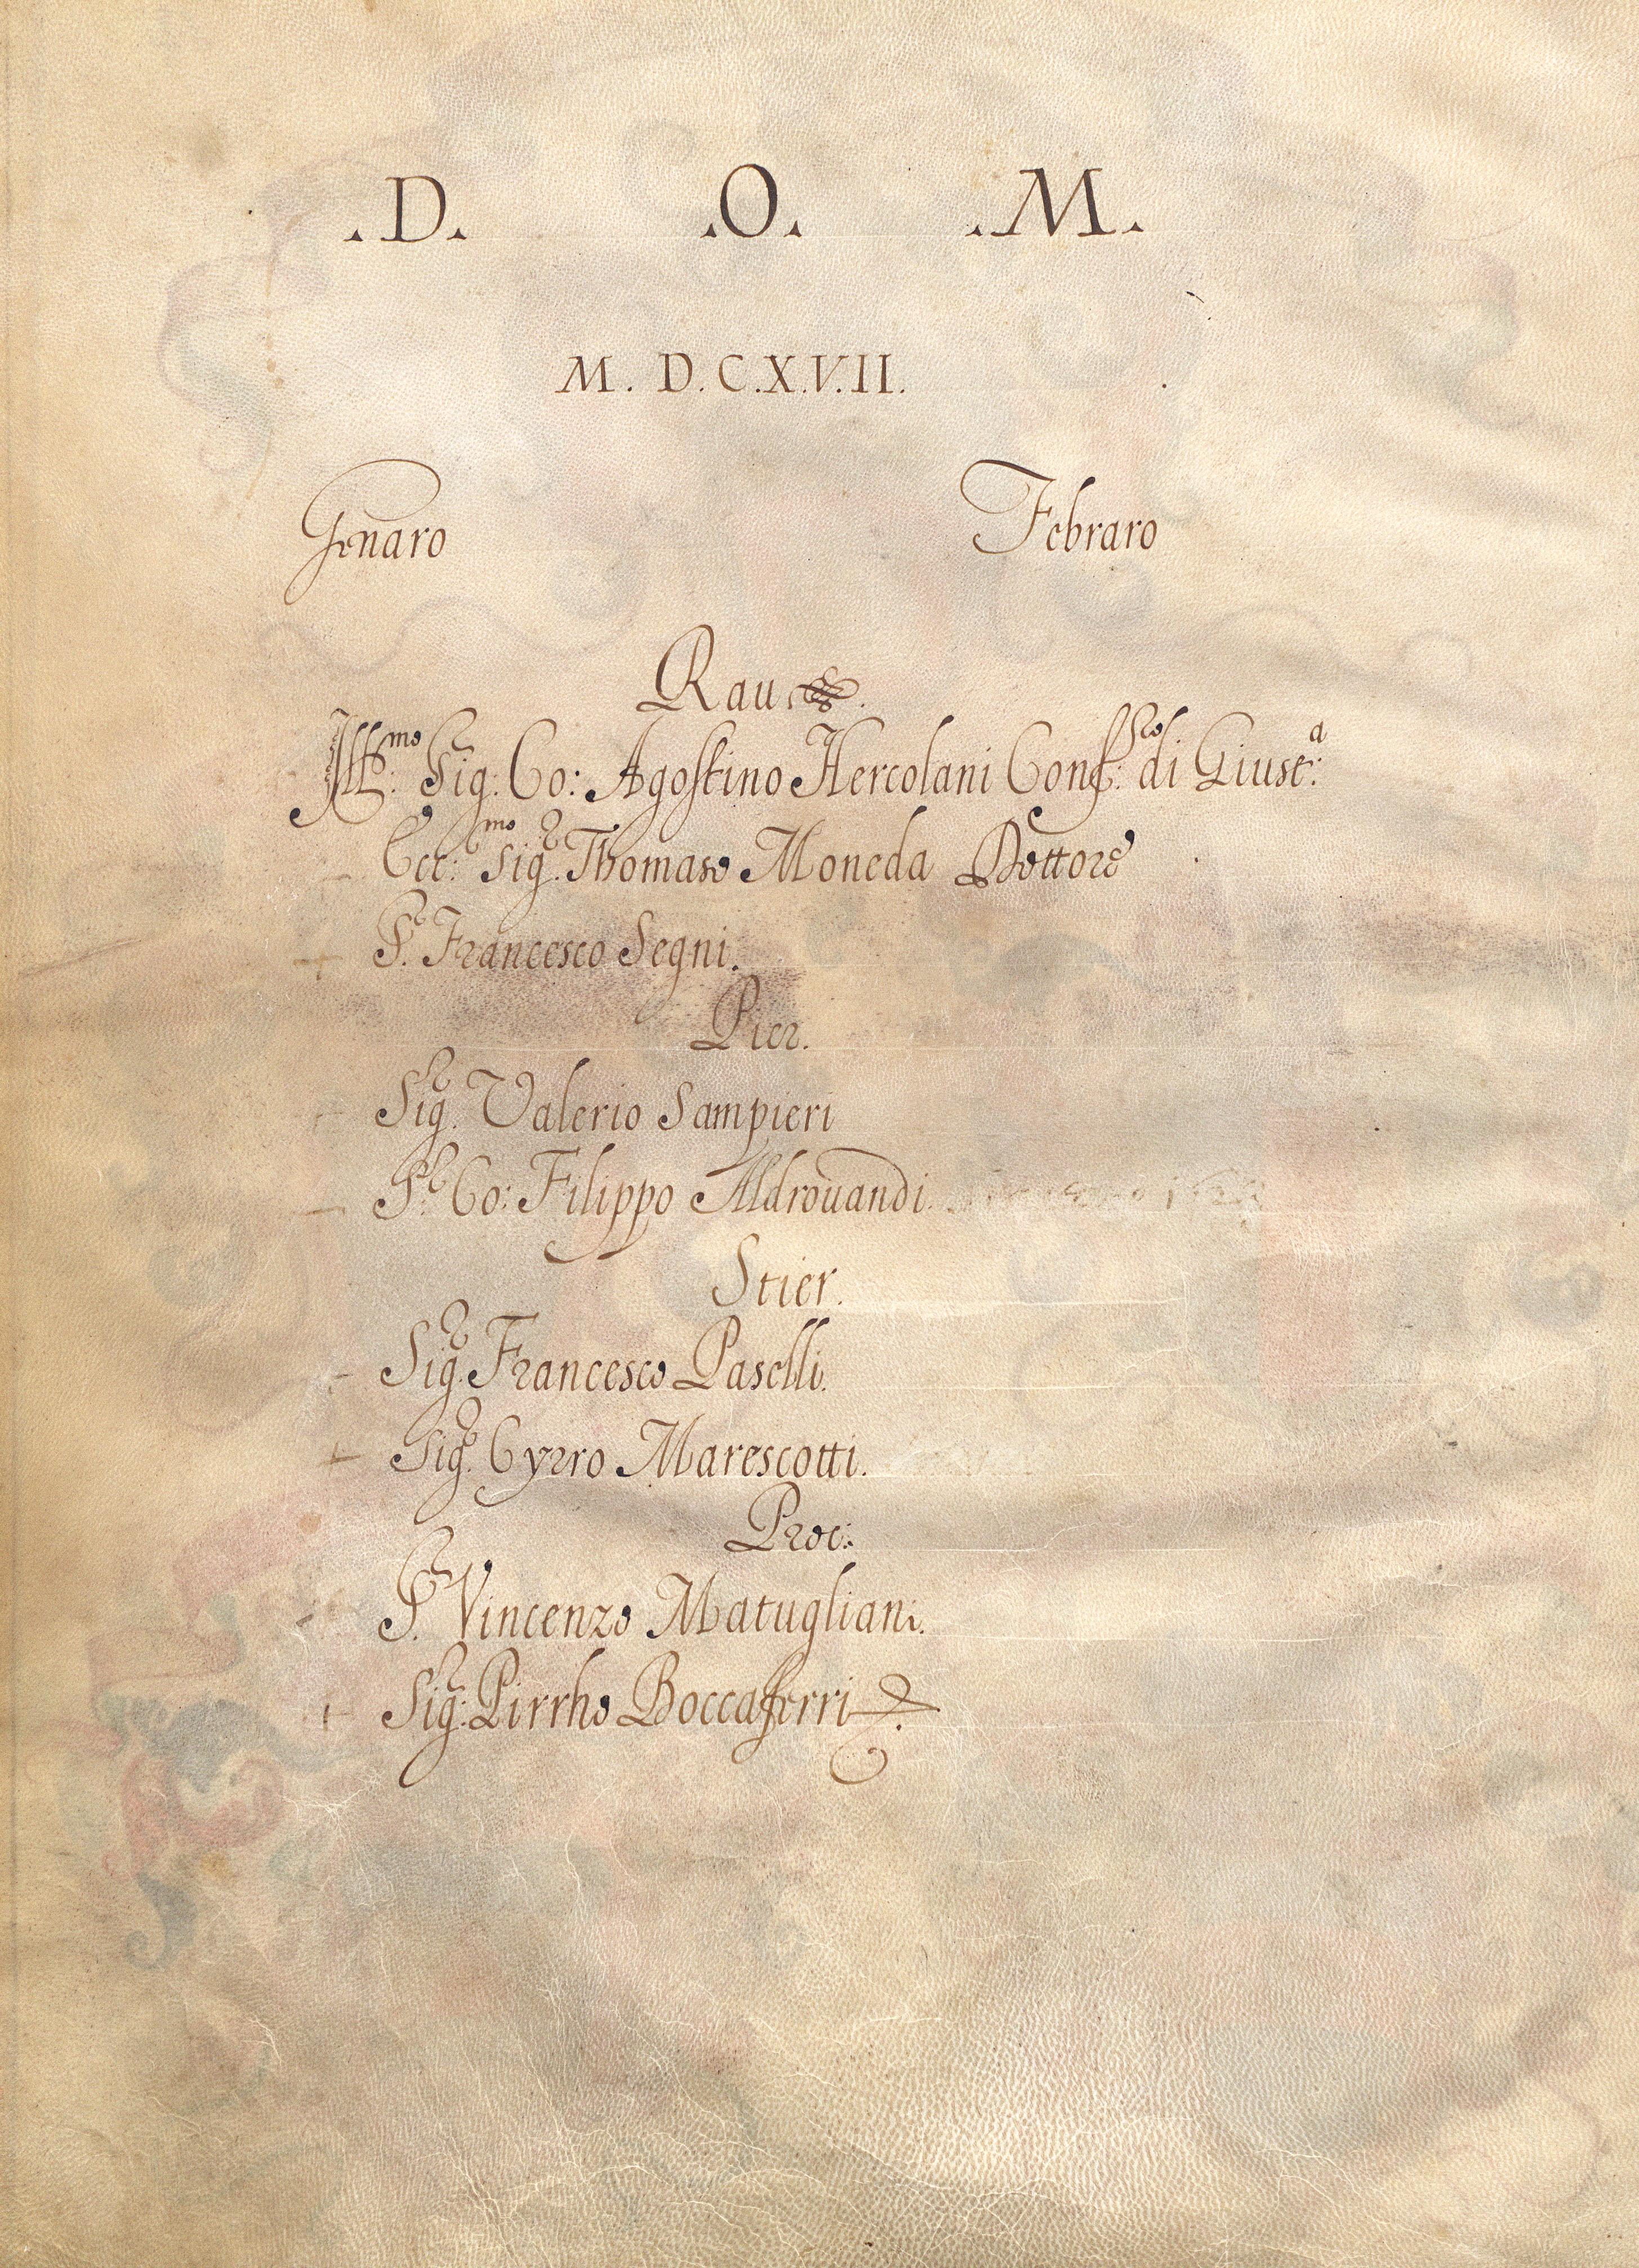 .D. .O. .M.
M.D.C.X.V.II.
Genaro Febraro
Rau.
Ill:mo Sig:r Co: Agostino Hercolani Conf:ro di Giust:a
Ecc:mo Sig.r Thomaso Moneda Dottore
S.r Francesco Segni.
Pier.
Sig.r Valerio Sampieri
S.r Co: Filippo Aldrouandi.
Stier.
Sig.r Francesco Paselli.
Sig.r Cyrro Marescotti.
Proc:
S.r Vincenzo Matugliani.
Sig:r Pirrho Boccaferri.